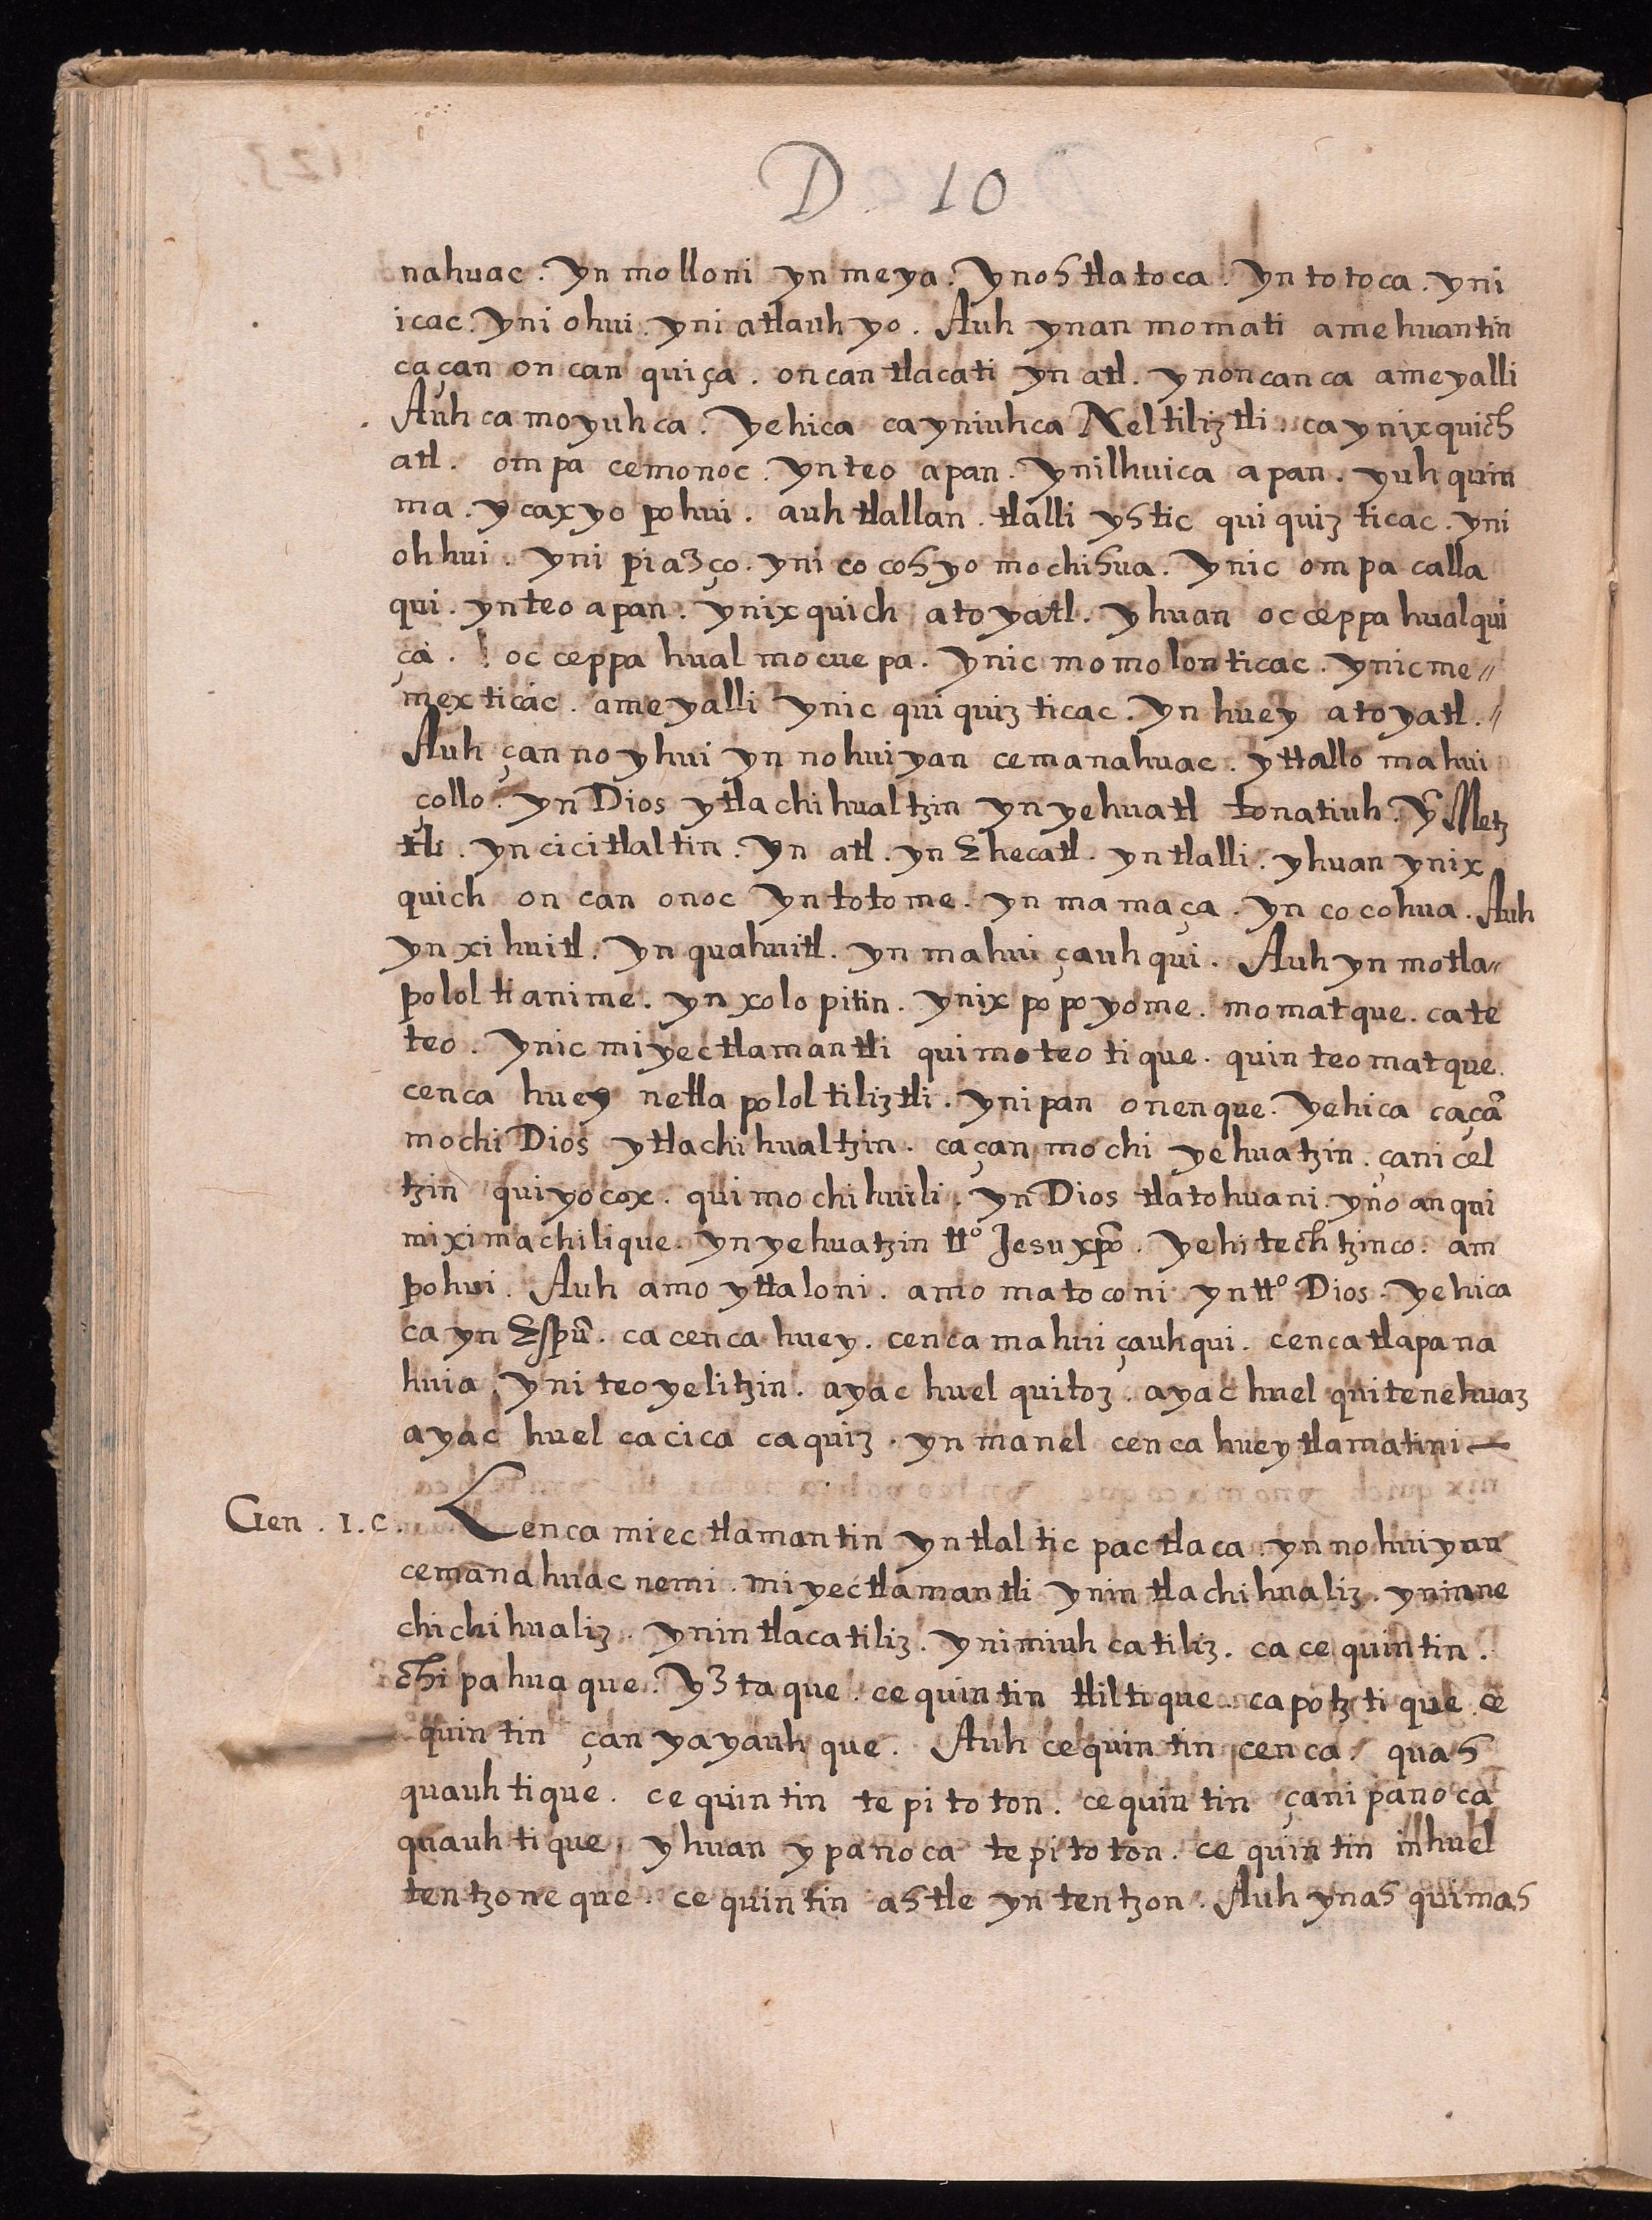 D. 10
nahuac. yn molloni yn meya. ynohtlatoca. yn totoca. yni
icac. yni ohui. yni atlauhyo. Auh ynan momati amehuantin
caçan oncan quiça. oncan tlacati yn atl. ynoncanca ameyalli
Auh camoyuhca. yehica cayniuhca Neltiliztli. caynixquich
atl. ompa cemonoc. ynteo apan. ynilhuica apan. yuhquin
ma. ycaxyo pohui. auh tlallan. tlalli yhtic quiquizticac. yni
ohhui. yni piazço. yni cocohyo mochihua. ynic ompa calla
qui. ynteo apan. ynixquich atoyatl. yhuan occeppa hualqui
ça. occeppa hualmocuepa. ynic momolonticac. ynicme〃
mexticac. ameyalli ynic quiquizticac. yn huey atoyatl.〃
Auh çannoyhui yn nohuiyan cemanahuac. yttallo mahui
çollo. yn Dios ytlachihualtzin ynyehuatl tonatiuh. ỹ Metz
tli. yn cicitlaltin. yn atl. yn Ehecatl. yntlalli. yhuan ynix
quich oncan onoc yntotome. yn mamaça. yn cocohua. Auh
yn xihuitl. yn quahuitl. yn mahuiçauhqui. Auh yn motla〃
pololtianime. yn xolopitin. ynixpopoyome. momatque. cate
teo. ynic miyectlamantli quimoteotique. quinteomatque.
cenca huey netlapololtiliztli. ynipan onenque. yehica caçã
mochi Dios ytlachihualtzin. caçan mochi yehuatzin. çanicel
tzin quiyocox. quimochihuili. yn Dios tlatohuani. yno anqui
miximachilique. ynyehuatzin tt.º Jesu xpõ. yehitechtzinco. am
pohui. Auh amo yttaloni. amo matoconi yntt.º Dios. yehica
ca yn Espũ. ca cenca huey. cenca mahuiçauhqui. cencatlapana
huia. yniteoyelitzin. ayac huel quitoz. ayac huel quitenehuaz
ayac huel cacicacaquiz. yn manel cenca huey tlamatini—
Gen. 1. c. Cenca miectlamantin yntlalticpactlaca. yn nohuiyan
cemanahuac nemi. miyectlamantli ynintlachihualiz. yninne
chichihualiz. ynintlacatiliz. ynimiuhcatiliz. ca cequintin.
chipahuaque. yztaque. cequintin tliltique. capotztique. ce
quintin çan yayauhque. Auh cequintin cenca. quah
quauhtique. cequintin tepitoton. cequintin çanipanoca
quauhtique, yhuan ypanoca tepitoton. cequintin inhuel
tentzoneque. cequintin ahtle yntentzon. Auh ynahquimah